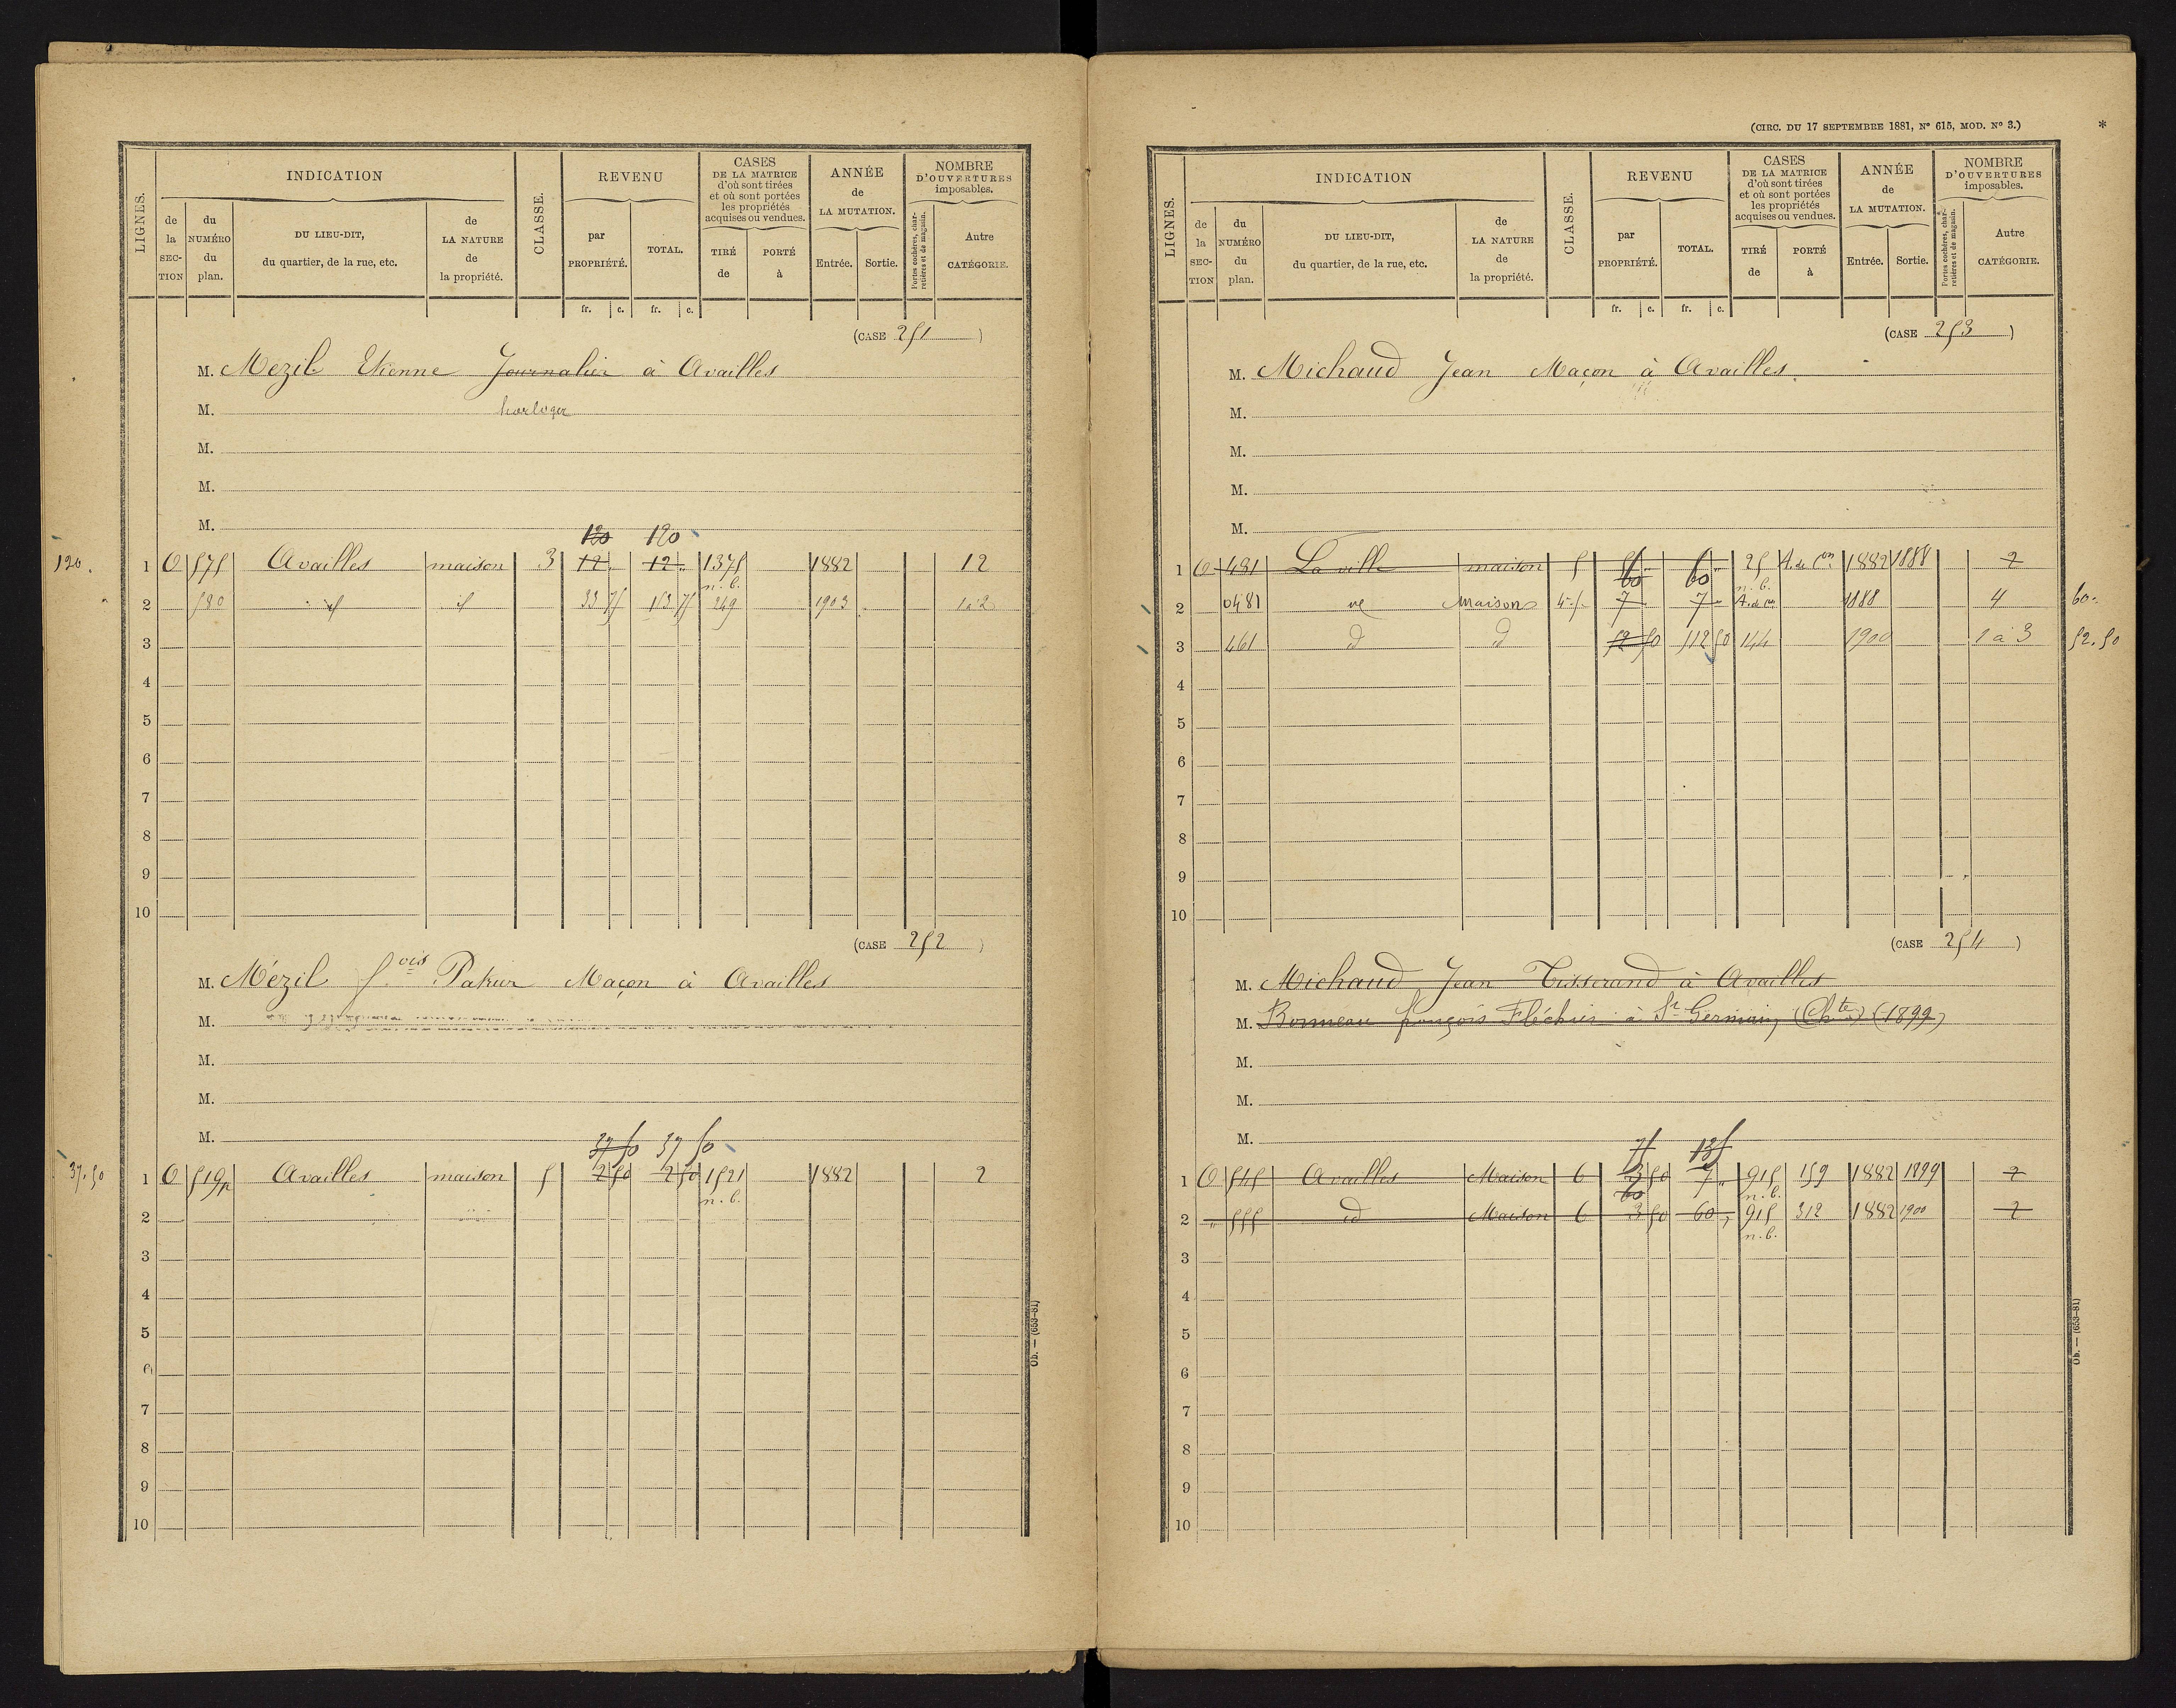 LIGNES.
INDICATION
de la SECTION
du NUMÉRO du plan.
DU LIEU-DIT, du quartier, de la rue, etc.
de LA NATURE de la propriété.
CLASSE.
REVENU
par PROPRIÉTÉ.
TOTAL.
fr. c. fr. c.
CASES DE LA MATRICE d'où sont tirées et où sont portées les propriétés acquises ou vendues.
TIRÉ de
PORTÉ à
ANNÉE de LA MUTATION.
Entrée. Sortie.
NOMBRE D'OUVERTURES imposables.
Portes cochères, charretières et de magasin.
Autre CATÉGORIE.
(CASE 251)
M. Mezil Etienne Journalier à Availles
M. horloger
M.
M.
M.
120 120
120. 1 O 575 Availles maison 3 12 " 12 " 1375 n.b. 1882 12
2 580 id id 33 75 153 75 249 1903 1 à 2
3
4
5
6
7
8
9
10
(CASE 252)
M. Mézil fvis Maçon à Availles
M.
M.
M.
M.
37 50 37 50
37.50 1 O 519p Availles maison 5 2 50 2 50 1521 n.b. 1882 2
2
3
4
5
6
7
8
9
10
Ob. — (653-81)
(CIRC. DU 17 SEPTEMBRE 1881, No 615, MOD. No 3.) *
LIGNES.
INDICATION
de la SECTION
du NUMÉRO du plan.
DU LIEU-DIT, du quartier, de la rue, etc.
de LA NATURE de la propriété.
CLASSE.
REVENU
par PROPRIÉTÉ.
TOTAL.
fr. c. fr. c.
CASES DE LA MATRICE d'où sont tirées et où sont portées les propriétés acquises ou vendues.
TIRÉ de
PORTÉ à
ANNÉE de LA MUTATION.
Entrée. Sortie.
NOMBRE D'OUVERTURES imposables.
Portes cochères, charretières et de magasin.
Autre CATÉGORIE.
(CASE 253)
M. Michaud Jean Maçon à Availles
M.
M.
M.
M.
1 O 481 La ville maison 5 25 n.b. A. de con 1882 1888 2
60 60
2 0481 Maison 4-5 7 7 A. de con 1888 4 60
3 461 d d 52 50 112 50 144 1900 1 à 3 52.50
4
5
6
7
8
9
10
(CASE 254)
M. Michaud Jean Tisserand à Availles
M. Bonneau françois à St Germain (Chte) (1899)
M.
M.
M.
75 135
1 O 545 Availles Maison 6 3 50 7 " 915 n.b. 159 1882 1899 2
60
2 " 555 id Maison 6 3 50 60 " 915 n.b. 312 1882 1900 2
3
4
5
6
7
8
9
10
Ob. — (653-81)